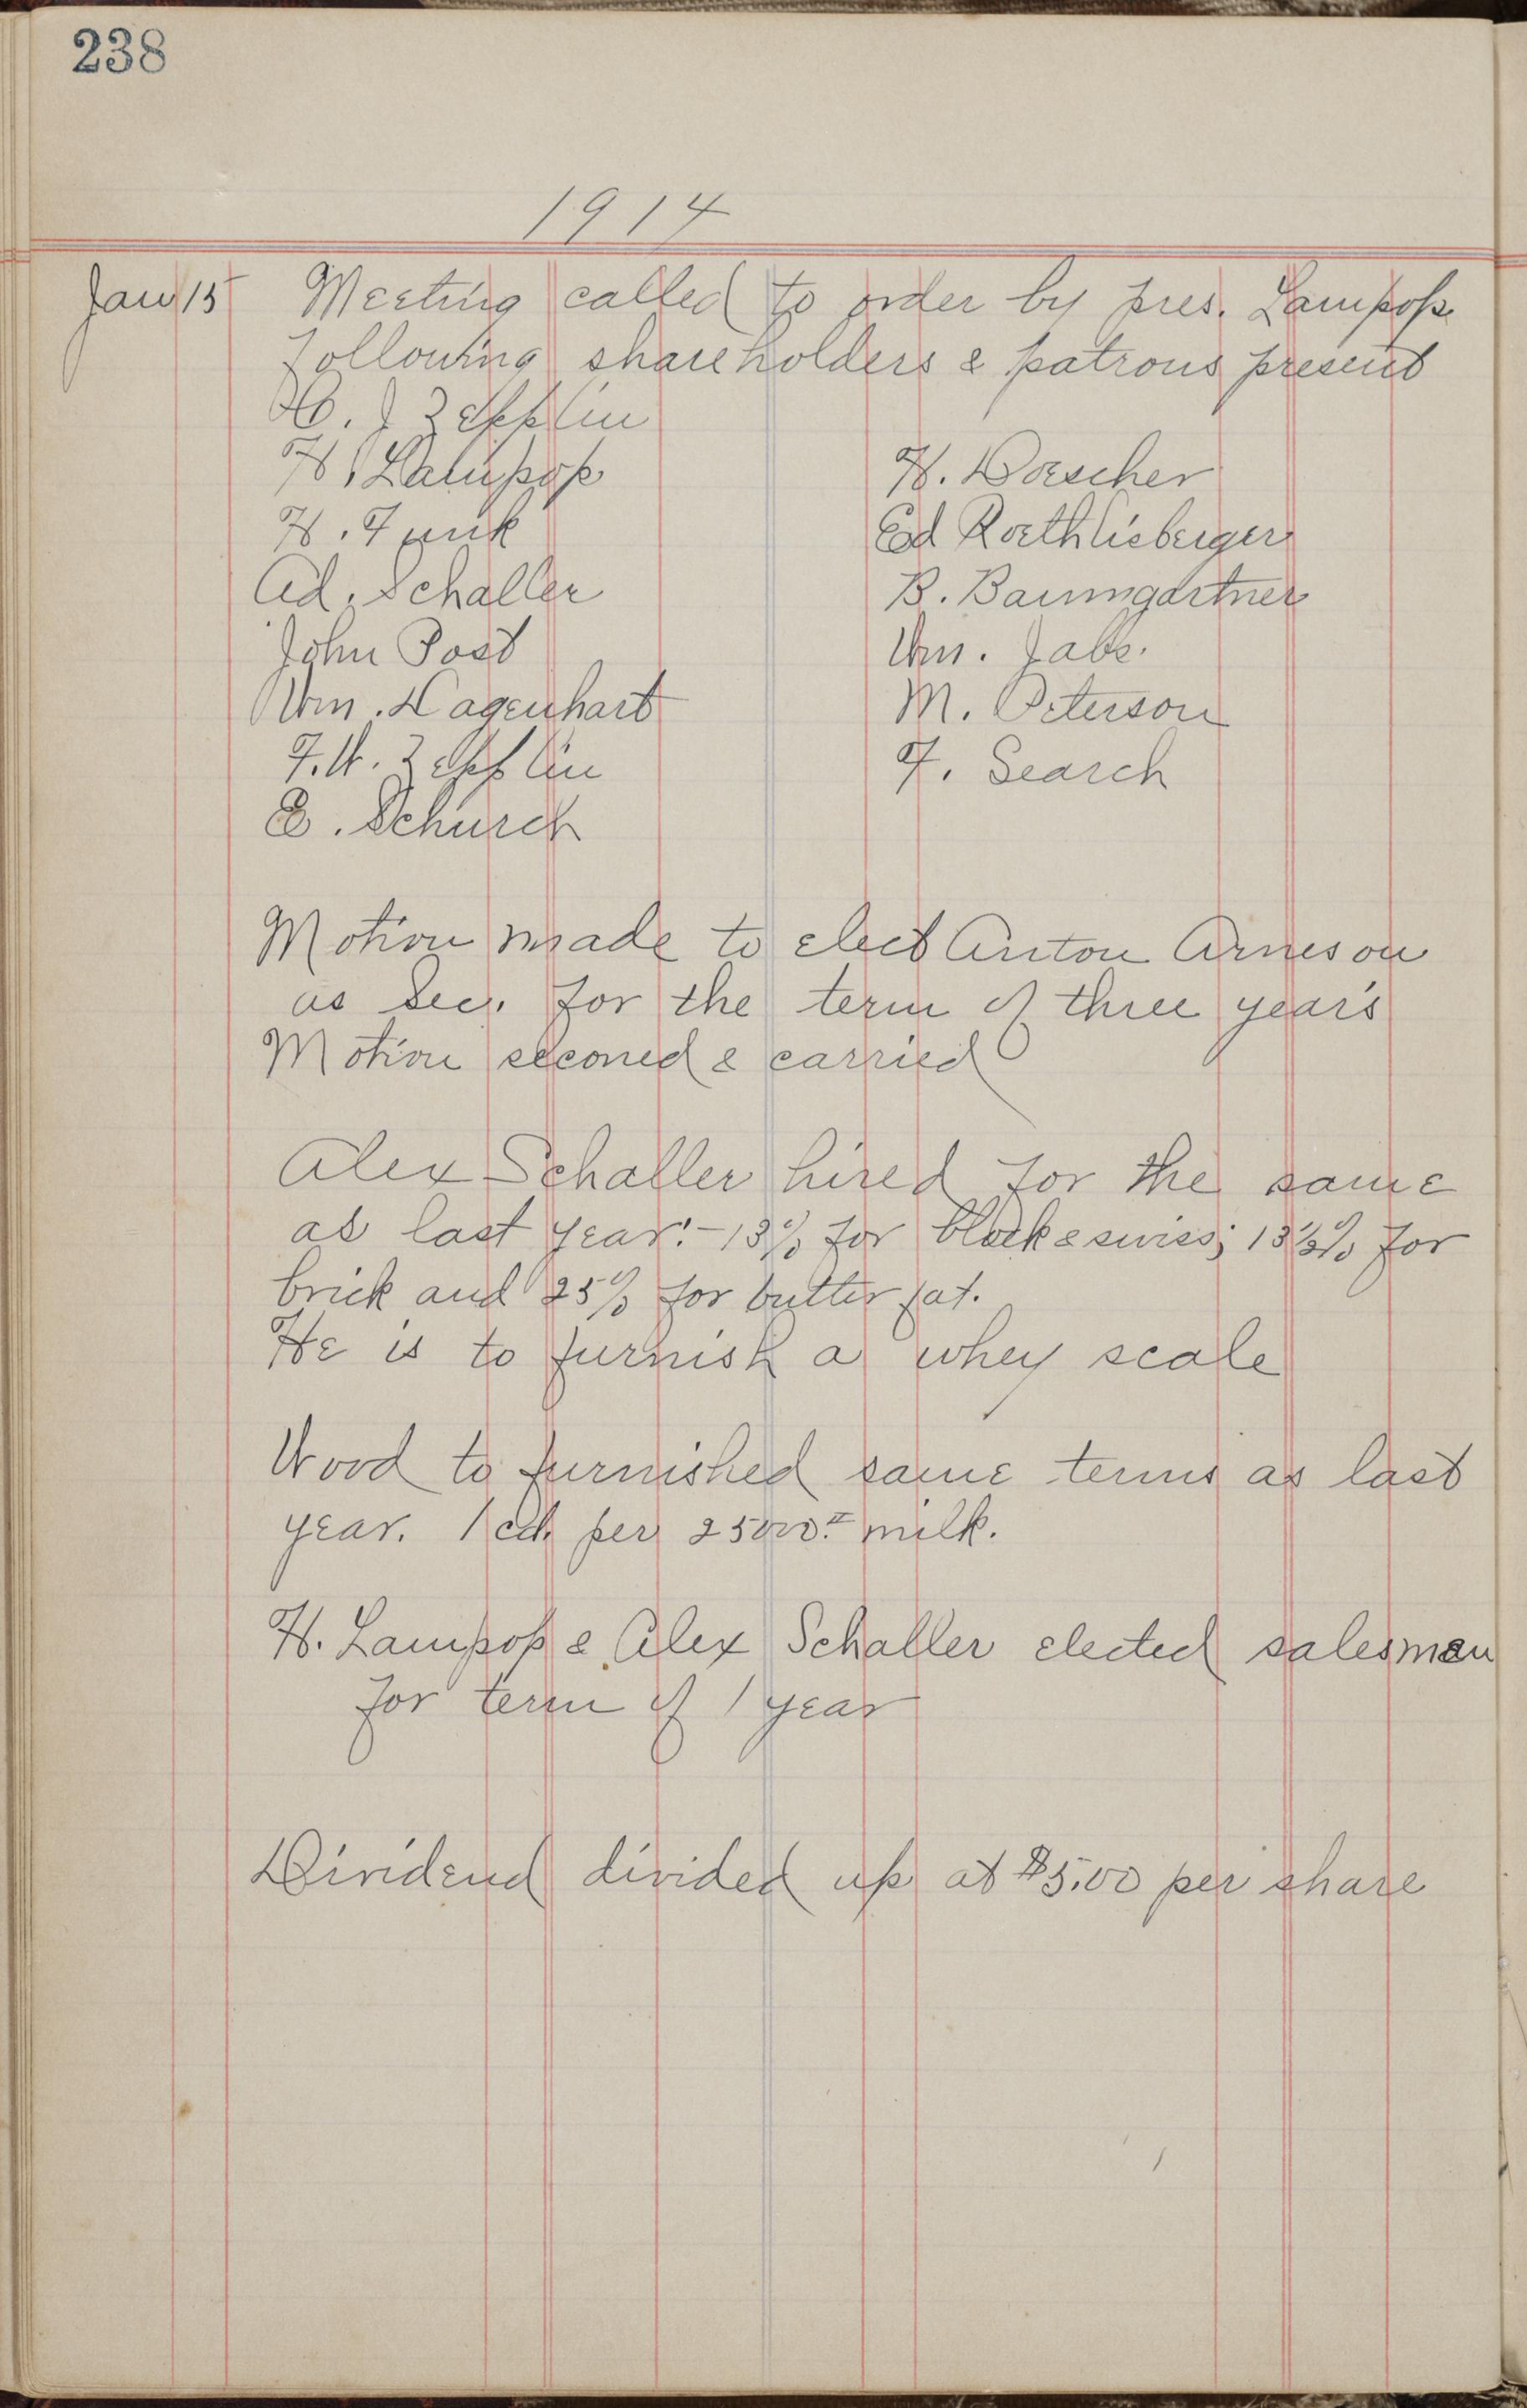 238
1914
Jan 15 Meeting called to order by pres. Lampop.
Following shareholders & patrons present
H. J Zepplin
H. Lampop
H. Doescher
H. Funk
Ed Roethlisberger
Ad. Schaller
B. Baumgartner
John Post
Wm. Jabs.
Wm. Hagenhart
M. Peterson
F.W. Zepplin
F. Search
E. Schurch
Motion made to elect Anton Arneson
as Sec. for the term of three years
Motion seconed & carried
Alex Schaller hired for the same
as last year:- 13% for block & swiss; 13½% for
brick and 25% for butter fat.
He is to furnish a whey scale
Wood to furnished same terms as last
year. 1 cd. per 25000# milk.
H. Lampop & Alex Schaller elected salesmen
for term of 1 year
Dividend divided up at $5.00 per share